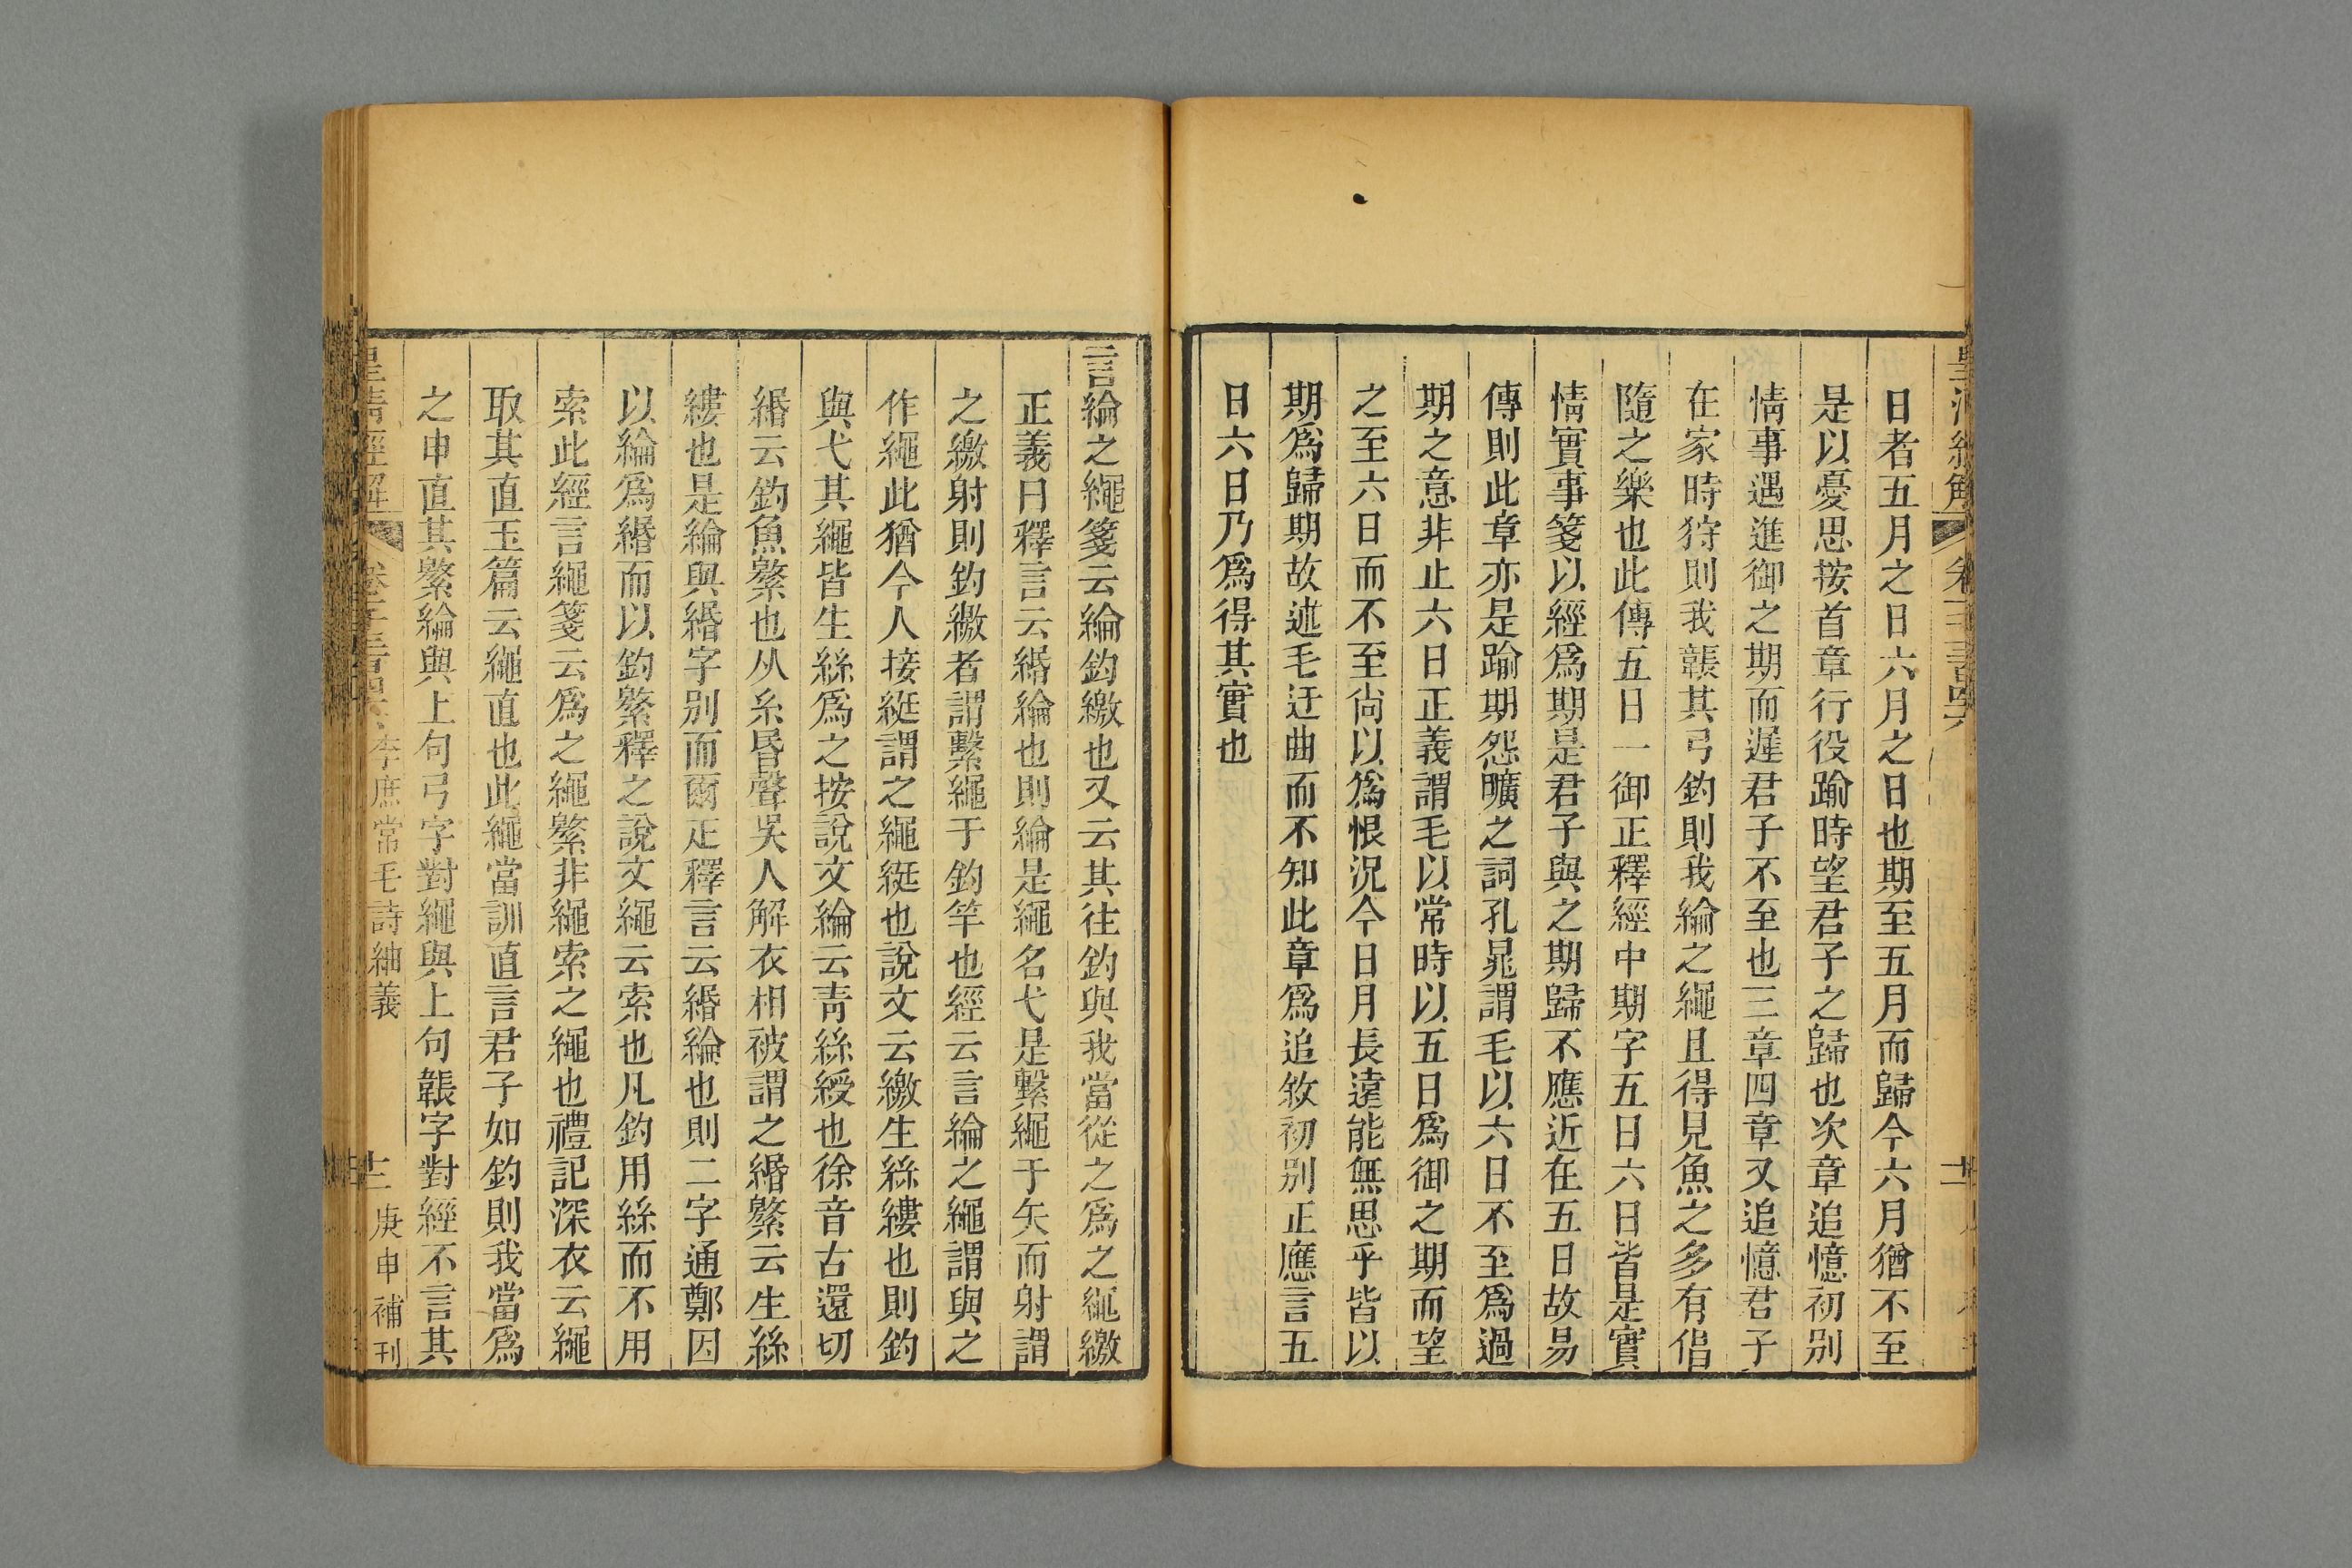 日者五月之日六月之日也期至五月而歸今六月猶不至
是以憂思按首章行役踰時望君子之歸也次章追憶初別
情事遇進御之期而遲君子不至也三章四章又追憶君子
在家時狩則我韔其弓釣則我綸之繩且得見魚之多有偕
隨之樂也此傳五日一御正釋經中期字五日六日皆是實
情實事箋以經爲期是君子與之期歸不應近在五日故易
傳則此章亦是踰期怨曠之詞孔晁謂毛以六日不至爲過
期之意非止六日正義謂毛以常時以五日爲御之期而望
之至六日而不至尙以爲恨況今日月長遠能無思乎皆以
期爲歸期故述毛迂曲而不知此章爲追敘初別正應言五
日六日乃爲得其實也
言綸之繩箋云綸釣繳也又云其往釣與我當從之爲之繩繳
正義曰釋言云緡綸也則綸是繩名弋是繫繩于矢而射謂
之繳射則釣繳者謂繫繩于釣竿也經云言綸之繩謂與之
作繩此猶今人接綎謂之繩綎也說文云繳生絲縷也則釣
與弋其繩皆生絲爲之按說文綸云靑絲綬也徐音古還切
緡云釣魚繁也从糸昏聲吳人解衣相被謂之緡繁云生絲
縷也是綸與緡字別而爾疋釋言云緡綸也則二字通鄭因
以綸爲緡而以釣繁釋之說文繩云索也凡釣用絲而不用
索此經言繩箋云爲之繩繁非繩索之繩也禮記深衣云繩
取其直玉篇云繩直也此繩當訓直言君子如釣則我當爲
之申直其繁綸與上句弓字對繩與上句韔字對經不言其
皇淸經解
李庶常毛詩紬義
十二
庚申補刊